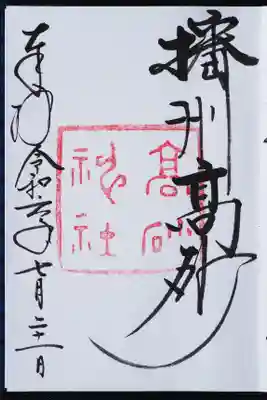 播州高砂
高砂神社
奉拝 令和 年七月二十一日